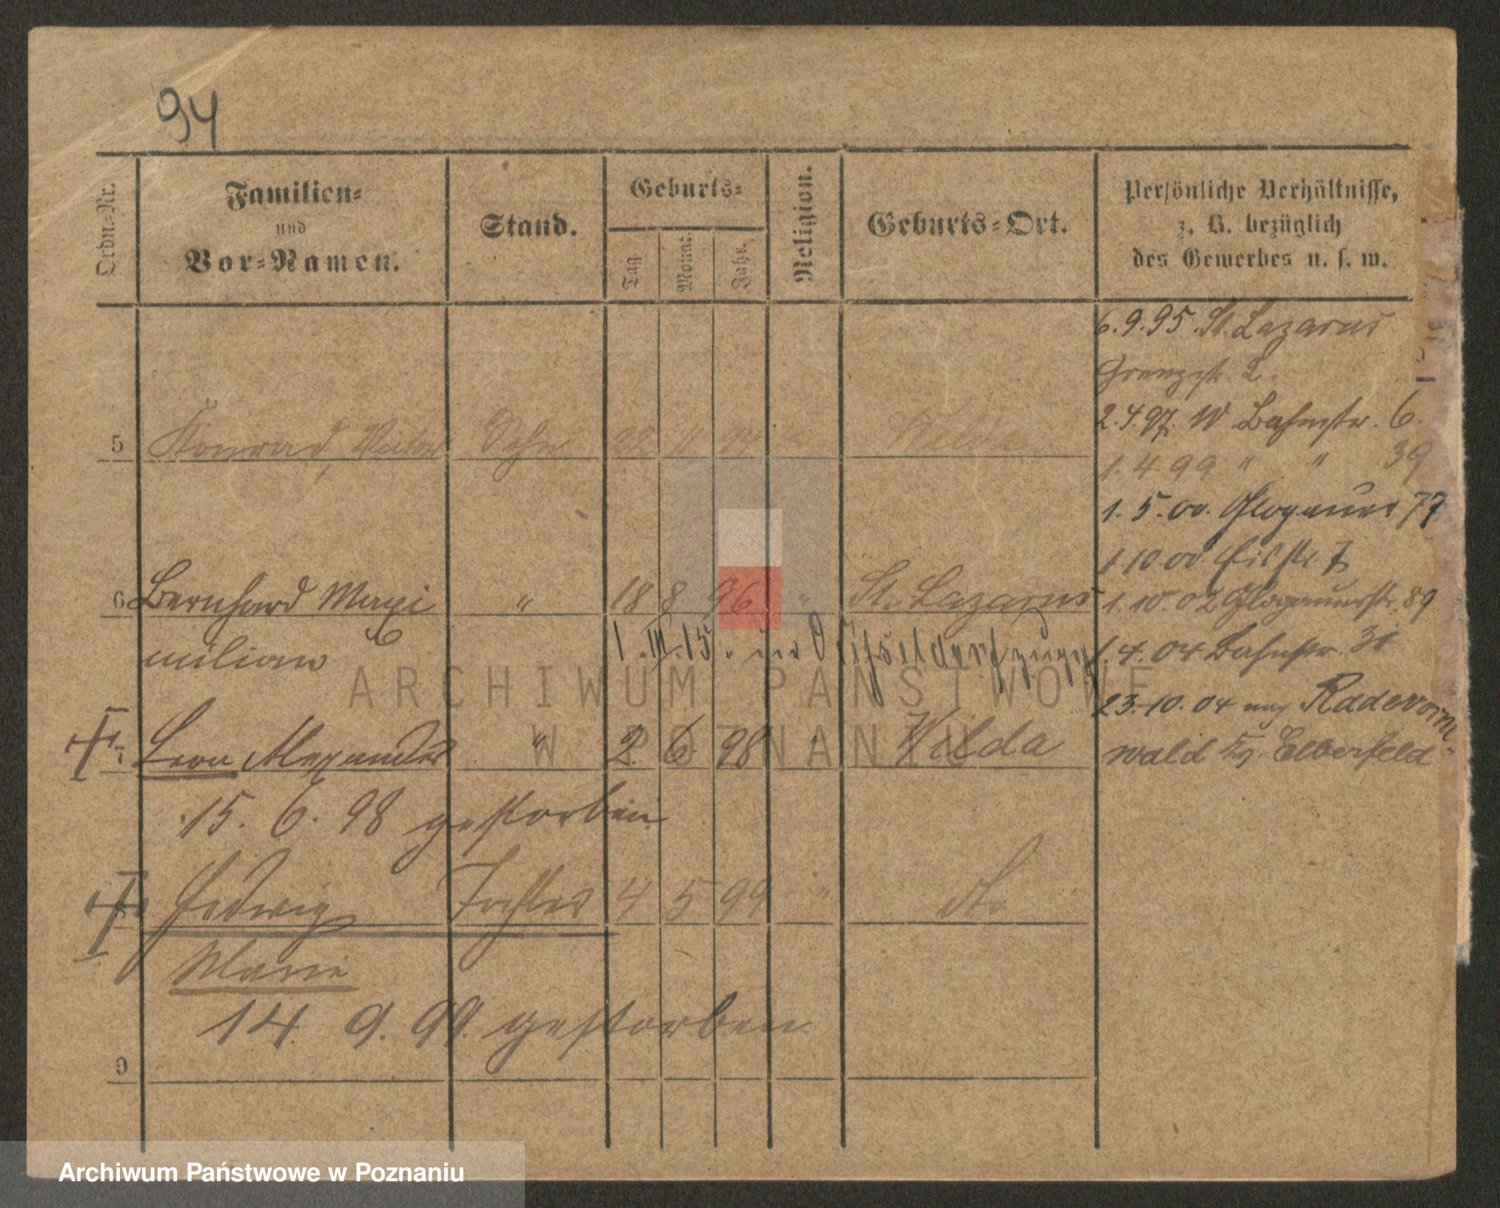 94
Ordn.-Nr.
Familien-
und
Vor-Namen.
Stand.
Geburts-
Tag.
Monat.
Jahr.
Religion.
Geburts-Ort.
Persönliche Verhältnisse,
z. B. bezüglich
des Gewerbes u. s. w.
6.9.95. St. Lazarus
Grenzstr. 2.
2.4.97. W. Bahnstr. 6.
5 Konrad, Sohn 22 11
1.4 99 " " 39
1.5.00. Glogauer 77
1 10 00 7
6 Bernhard Maxi " 18 8 96 " St. Lazarus
1.10.02 Glogauerstr. 89
milian
1.III.15. Düsseldorf
1.4.04 Bahnstr. 31
23.10.04 nach Radevorm-
7 Leon Alexander " 2. 6 98 " Wilda
wald Elberfeld
15. 6. 98 gestorben
Hedwig Tochter 4 5 99 " dto
Marie
14. 9. 99. gestorben
9
ARCHIWUM PAŃSTWOWE
W POZNANIU
Archiwum Państwowe w Poznaniu